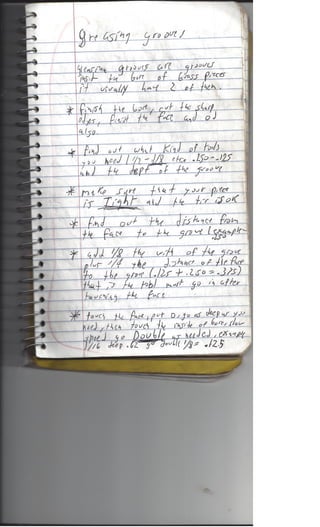 greasing grooves
greasing grooves are grooves
insit the bore of brass pieces
it usually have 2 of them.
* finish the bore, cut the sharp
edges, finish the face and od
also.
* find out what kind of tools
you need 1/4 - 1/8 .250 - .125
and the dept of the groove
* make sure that your piece
is Tight and the tir is OK
* find out the distance from
the face to the groove (example
.250
* add 1/8 the with of the groove
plus 1/4 the distance of the face
to the groove (.125 + .250 = .375)
that is the tool must go in after
touching the face
* touch the face, put 0, go as deep as you
need, then touch the inside of bore, slow
speed go Double as needed, example
1/16 deep .62 go double 1/8 = .125